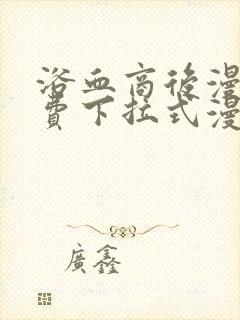 浴血商後漫
費下拉式漫
廣鑫